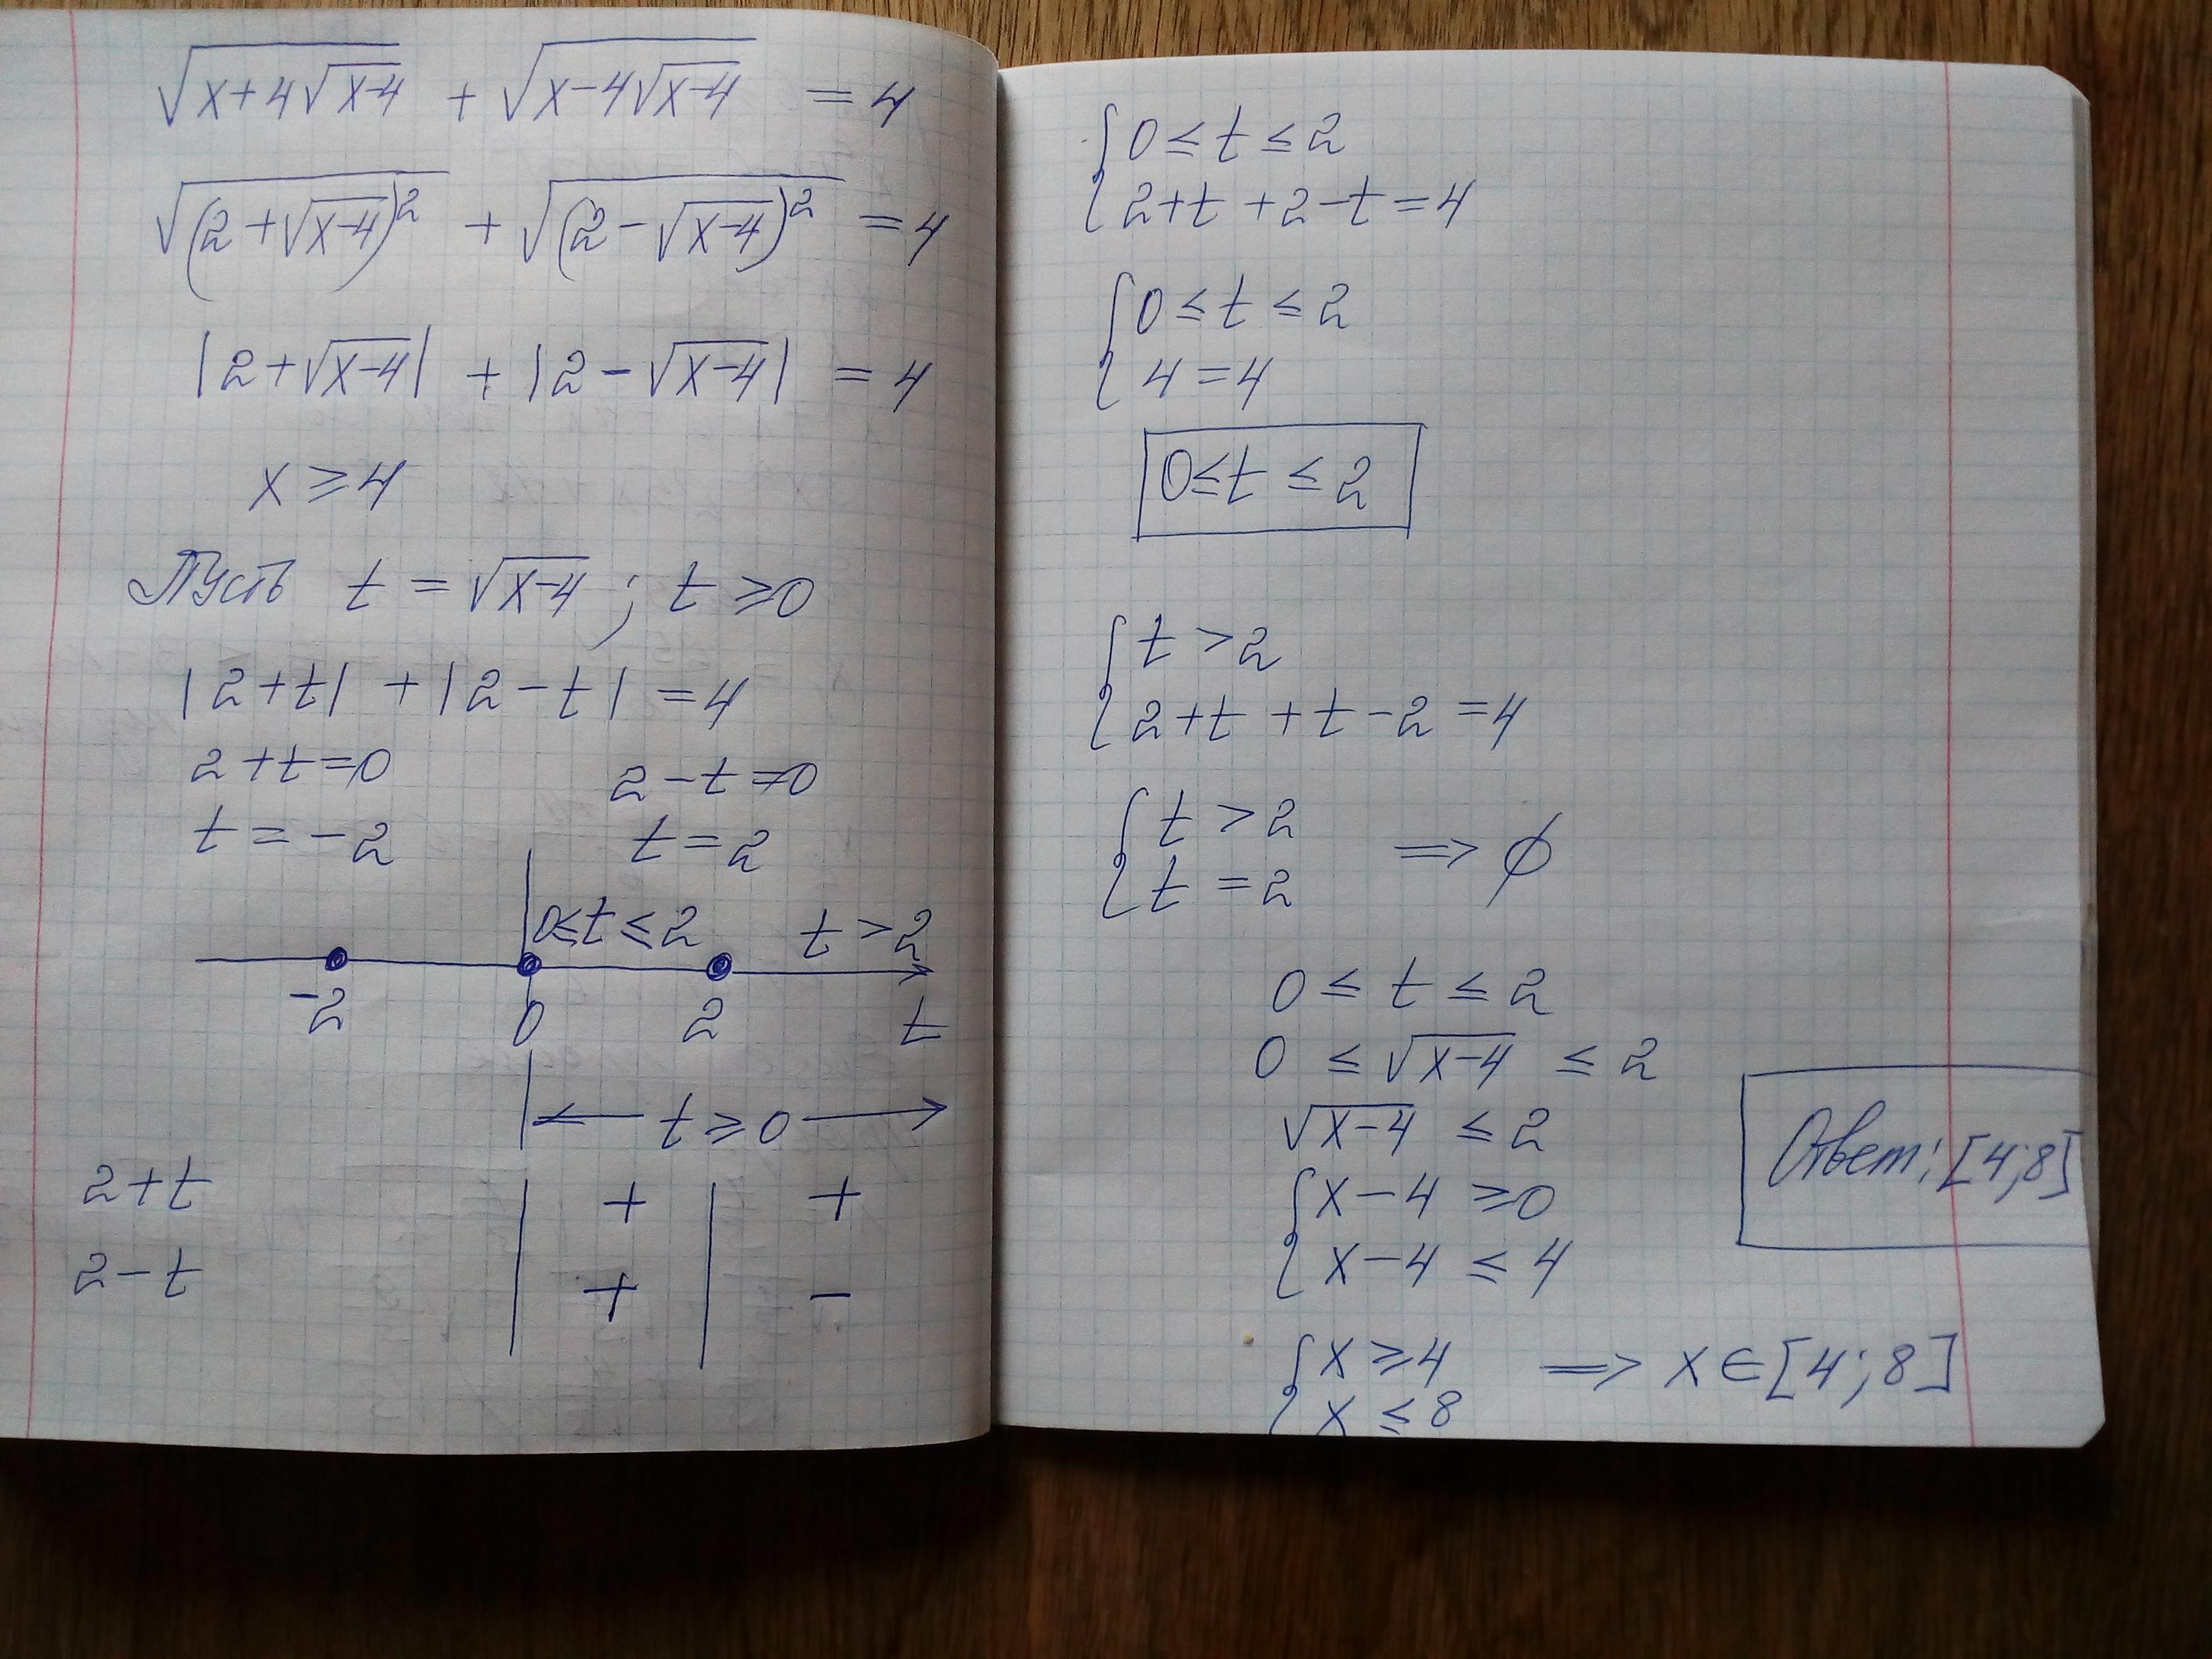 √(x+4√(x-4)) + √(x-4√(x-4)) = 4
√((2+√(x-4))²) + √((2-√(x-4))²) = 4
|2+√(x-4)| + |2-√(x-4)| = 4
x ≥ 4
Пусть t = √(x-4) ; t ≥ 0
|2+t| + |2-t| = 4
2+t=0 2-t=0
t = -2 t = 2
0≤t≤2 t > 2
-2 0 2 t
t ≥ 0
2+t + +
2-t + -
{ 0 ≤ t ≤ 2
2+t+2-t=4
{ 0 ≤ t ≤ 2
4 = 4
0≤t ≤ 2
{ t > 2
2+t+t-2=4
{ t > 2
t = 2 => ∅
0 ≤ t ≤ 2
0 ≤ √(x-4) ≤ 2
√(x-4) ≤ 2
{ x-4 ≥ 0
x-4 ≤ 4
{ x ≥ 4
x ≤ 8 => x ∈ [4;8]
Ответ: [4;8]